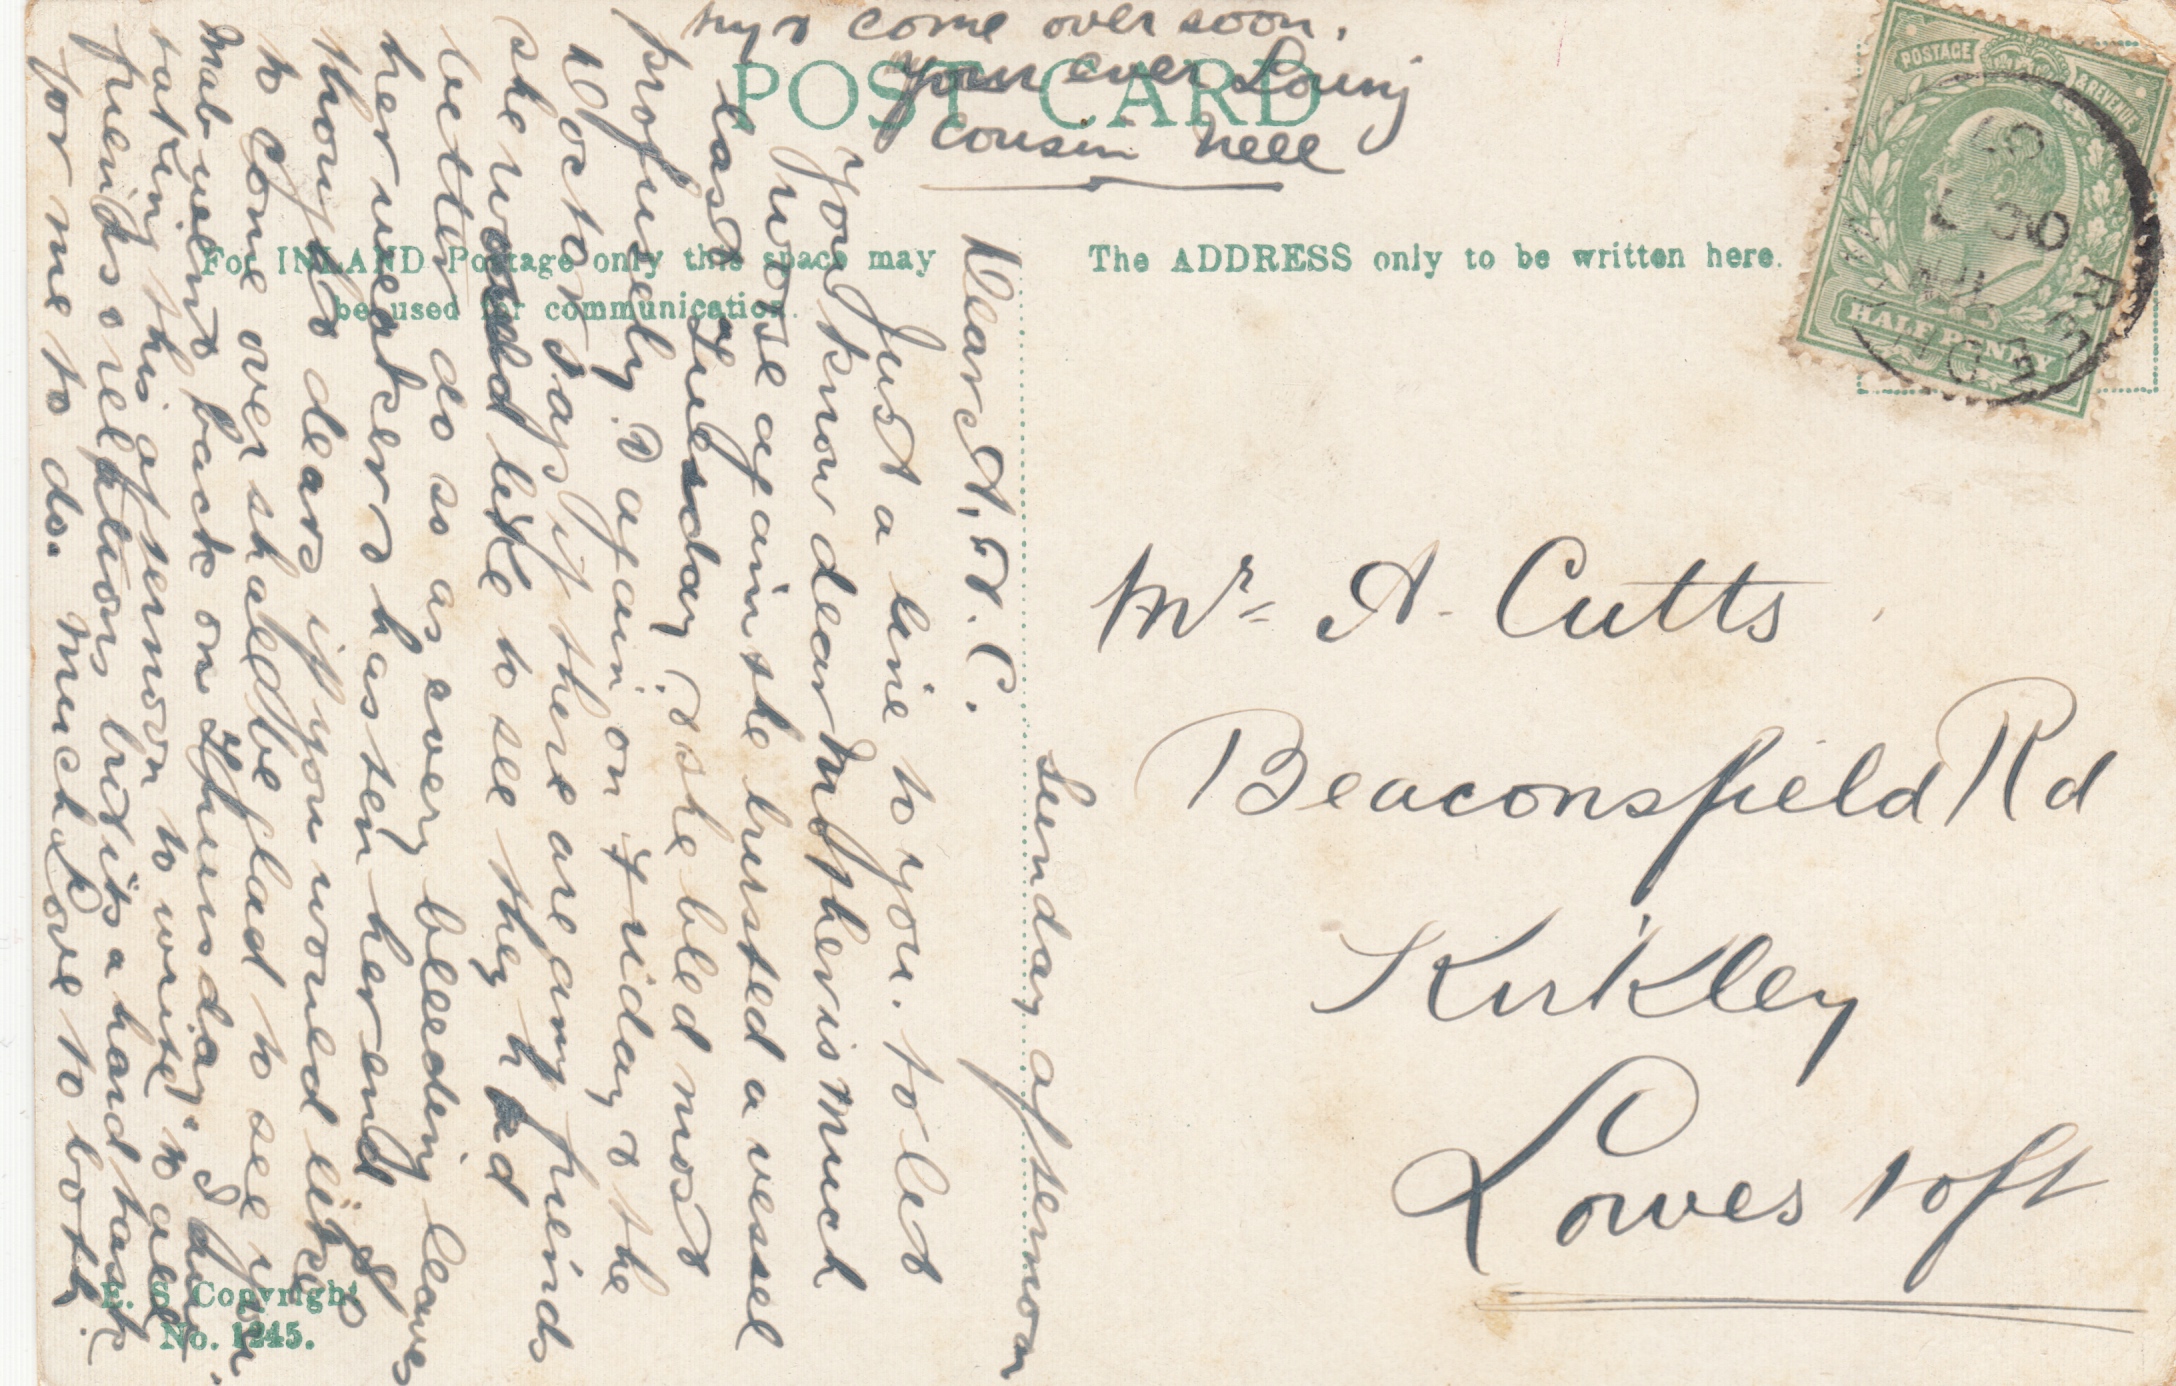 POST CARD
For INLAND Postage only this space may
be used for communication.
The ADDRESS only to be written here.
POSTAGE & REVENUE
HALF PENNY
Sunday afternoon
Dear A, A. C.
Just a line to you. to let
you know dear Mother is much
worse again she bursted a vessel
last Tuesday, & she bled most
profusely. & again on Friday & the
doctor says if there are any freinds
she would like to see they had
better do so as every bleeding leaves
her weaker & hasten her end
thought dears if you would like
to come over shall be glad to see you.
Mab went back on Thursday. I am
taking this afternoon to write to all
freinds & relations but its a hard task
for me to do. Much Love to both
try & come over soon.
Your ever Loving
Cousin Nell
Mr. A. Cutts
Beaconsfield Rd
Kirkley
Lowestoft
E. S Copyright
No. 1245.